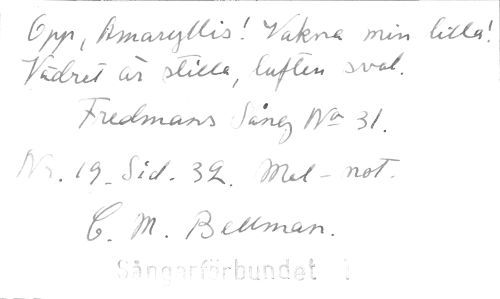 Opp, Amaryllis! Vakna min lilla!
Vädret är stilla, luften sval.
Fredmans Sång No 31.
Nr. 19. Sid. 32. Mel-not.
C. M. Bellman.
Sångarförbundet i